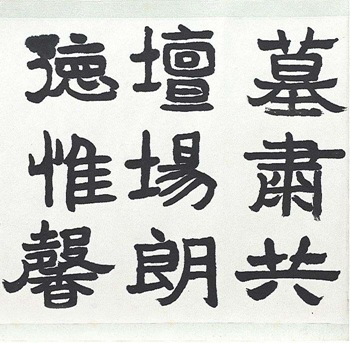 墓肅共
壇場朗
德惟馨